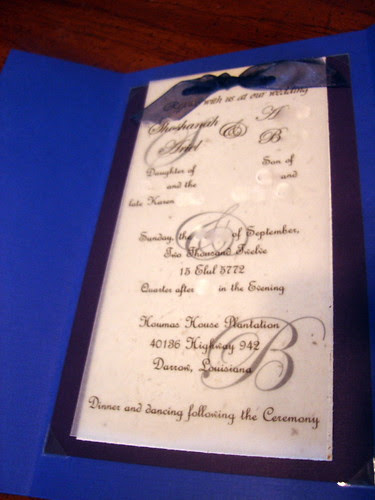 with us at our wedding
Shoshanah & A
Ariel B
Daughter of Son of
and the and
late Karen
Sunday, the of September,
Two Thousand Twelve
15 Elul 5772
Quarter after in the Evening
Houmas House Plantation
40136 Highway 942
Darrow, Louisiana
B
Dinner and dancing following the Ceremony